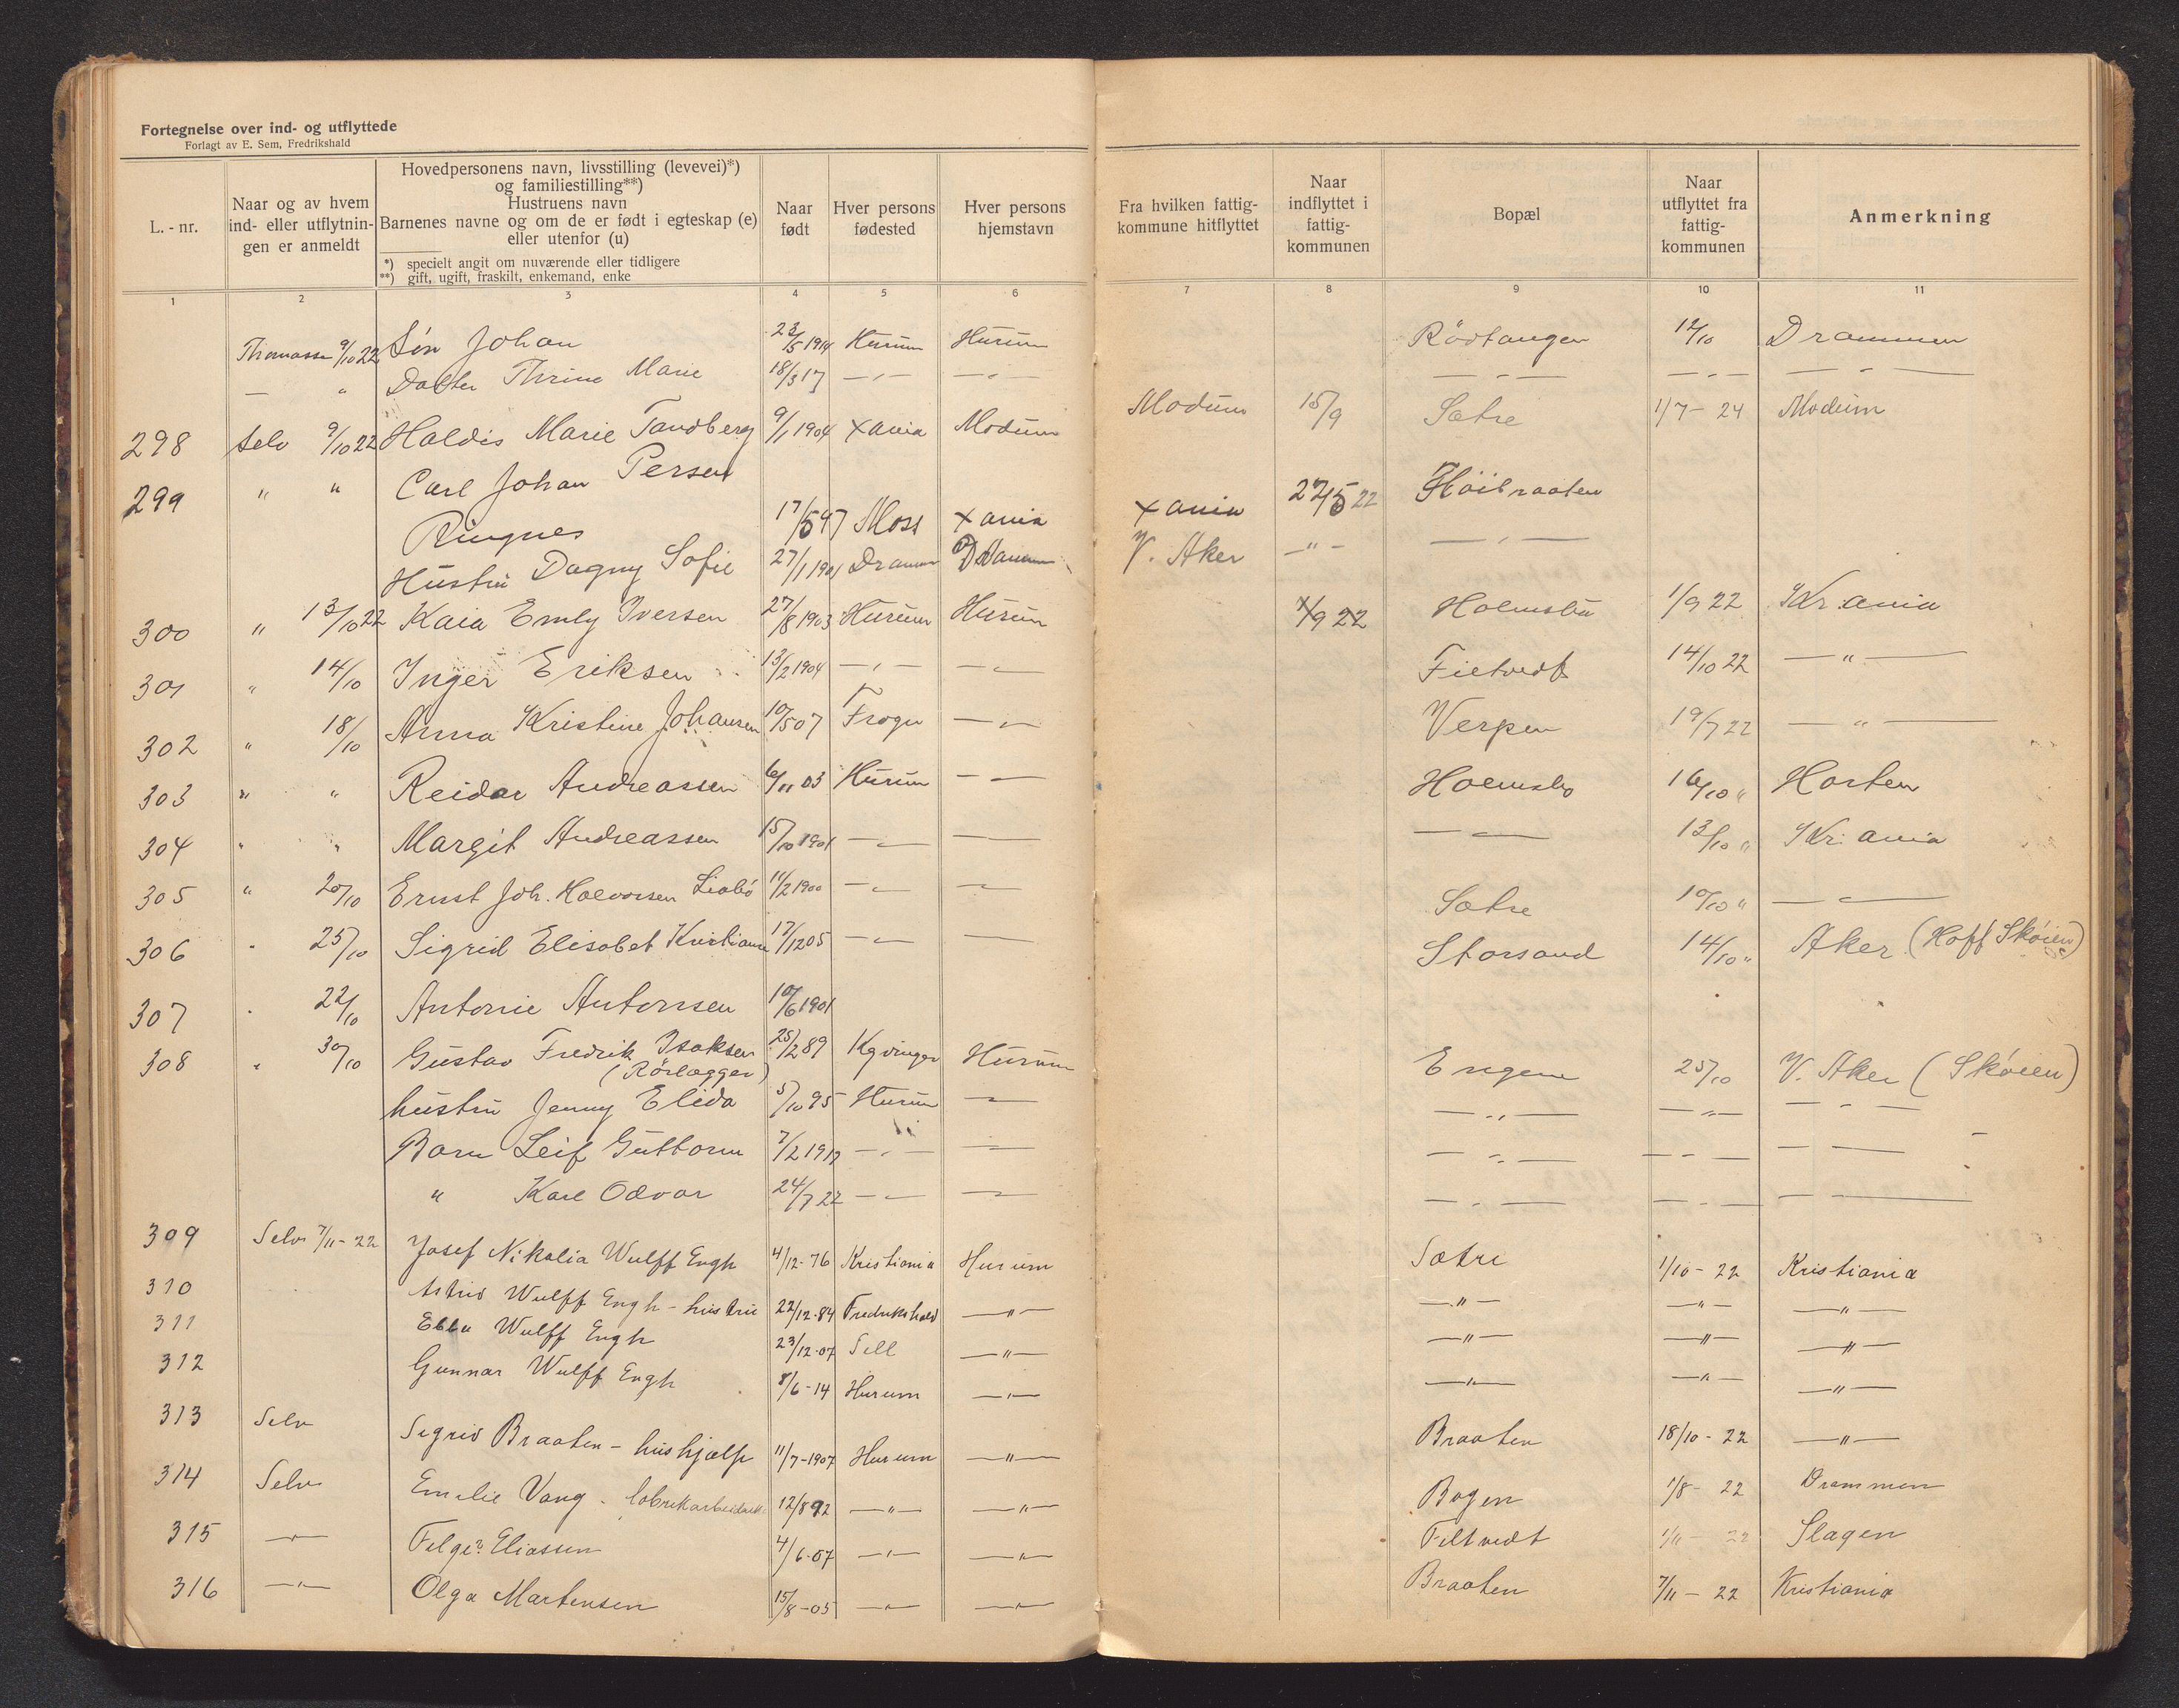 Fortegnelse over ind- og utflyttede
Forlagt av E. Sem, Fredrikshald
L.-nr.
Naar og av hvem ind- eller utflytnin- gen er anmeldt
Hovedpersonens navn, livsstilling (levevei)*)
og familiestilling**)
Hustruens navn
Barnenes navne og om de er født i egteskap (e)
eller utenfor (u)
*) specielt angit om nuværende eller tidligere
**) gift, ugift, fraskilt, enkemand, enke
Naar født
Hver persons fødested
Hver persons hjemstavn
Fra hvilken fattig- kommune hitflyttet
Naar indflyttet i fattig- kommunen
Bopæl
Naar utflyttet fra fattig- kommunen
Anmerkning
1 2 3 4 5 6 7 8 9 10 11
Thomassen 9/10 22 Søn Johan 23/5 1914 Hurum Hurum Rödtangen 12/10 Drammen
— " Datter Thrine Marie 18/3 17 — " — — " — — " — — " — — " —
298 Selv 9/10 22 Haldis Marie Tandberg 9/1 1904 Xania Modum Modum 15/9 Sætre 1/7 - 24 Modum
299 " " Carl Johan Persen
Ringnes 17/5 97 Moss Xania Xania 27/5 22 Höibraaten
Hustru Dagny Sofie 27/1 1901 Drammen Drammen V. Aker — " — — " —
300 " 13/10 22 Kaia Emly Iversen 27/8 1903 Hurum Hurum 1/9 22 Holmsbu 1/9 22 Kr.ania
301 " 14/10 Inger Eriksen 13/2 1904 — " — — " — Fietvedt 14/10 22 — " —
302 " 18/10 Anna Kristine Johansen 10/5 07 Frogn — " — Verpen 19/7 22 — " —
303 " " Reidar Andreassen 6/11 03 Hurum — " — Holmsbo 16/10 " Horten
304 " " Margit Andreassen 15/10 1901 — " — — Kr. ania 13/10 "
305 " 20/10 Ernst Joh. Halvorsen Liabö 11/2 1900 — " — — " — Sætre 10/10 " — " —
306 " 25/10 Sigrid Elisabet Kristiansen 17/12 05 — " — — Storsand 14/10 " Aker (Hoff Skøien)
307 " 22/10 Antonie Antonsen 10/6 1901
308 " 30/10 Gustav Fredrik Isaksen 25/2 89 Kgvinger Hurum Engene 25/10 V. Aker (Skøien)
(Rörlægger)
hustru Jenny Elida 5/10 95 Hurum — " — — " — — " — — " —
Barn Leif Guttorm 7/2 1917 — " — — " — — " — — " — — " —
" Karl Odvar 24/7 22 — " — — " — — " — — " — — " —
309 Selv 7/11 - 22 Josef Nikolia Wulff Engh 4/12-76 Kristiania Hurum Sætre 1/10 - 22 Kristiania
310 Astrid Wulff Engh - hustru 22/12-84 Fredrikshald — " — — " — — " — — " —
311 Ebba Wulff Engh 23/12-07 Sell — " — — " — — " — — " —
312 Gunnar Wulff Engh 8/6-14 Hurum — " — — " — — " — — " —
313 Selv Sigrid Braaten - hushjælp 11/7-1907 Hurum — " — Braaten 18/10 - 22 — " —
314 Selv Emilie Vang - fabrikarbeiderske 12/8 92 — " — — " — Bogen 1/8 - 22 Drammen
315 — " — Eliassen 4/6-07 — " — — " — Filtvedt 1/11 - 22 Slagen
316 — " — Olga Martensen 15/8-05 — " — — " — Braaten 7/11 - 22 Kristiania